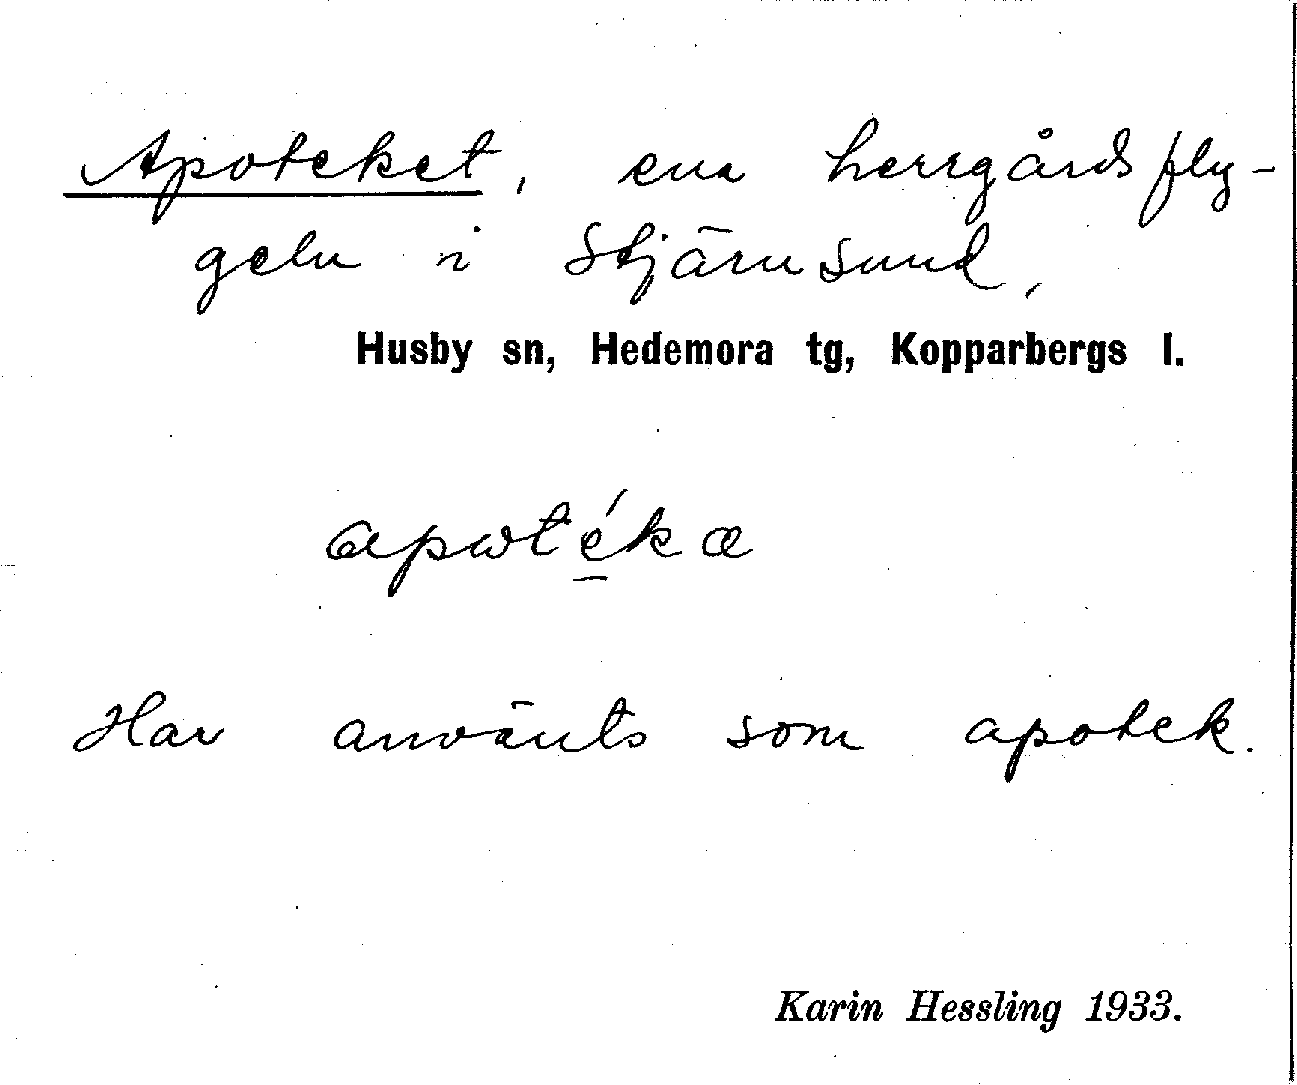 Apoteket, ena herrgårdsfly-
geln i Stjärnsund,
Husby sn, Hedemora tg, Kopparbergs l.
apωtékæ
Har använts som apotek.
Karin Hessling 1933.